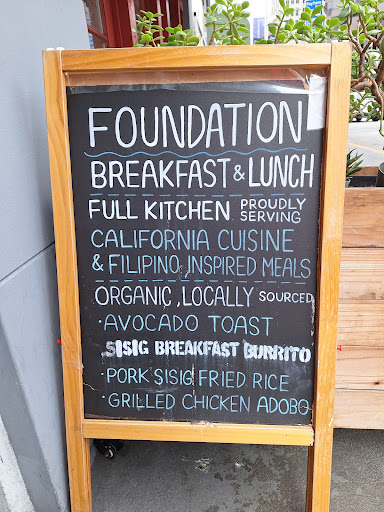 FOUNDATION
BREAKFAST & LUNCH
FULL KITCHEN PROUDLY SERVING
CALIFORNIA CUISINE
& FILIPINO INSPIRED MEALS
ORGANIC, LOCALLY SOURCED
· AVOCADO TOAST
SISIG BREAKFAST BURRITO
· PORK SISIG FRIED RICE
· GRILLED CHICKEN ADOBO